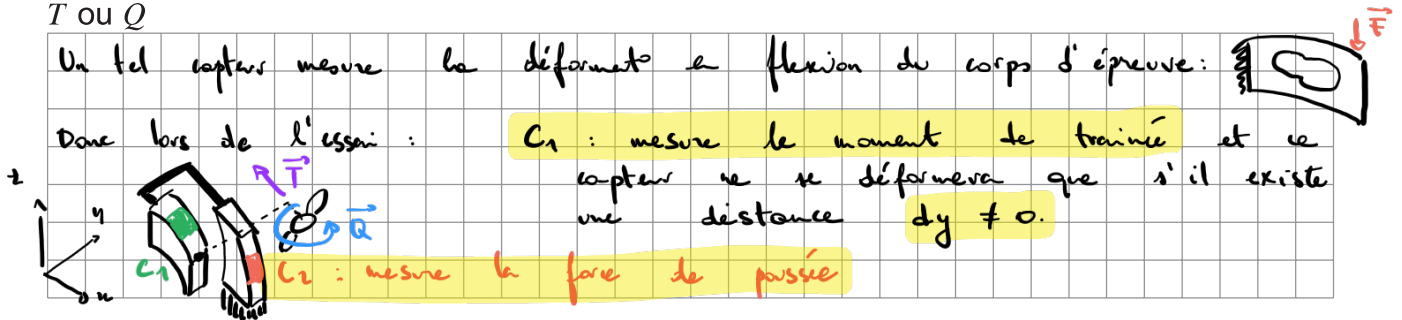 T ou Q
Un tel capteur mesure la déformat° en flexion du corps d'épreuve :
F
Donc lors de l'essai : C1 : mesure le moment de trainée et ce
capteur ne se déformera que s'il existe
une distance dy ≠ 0.
z
y
x
T
Q
C1
C2 : mesure la force de poussée